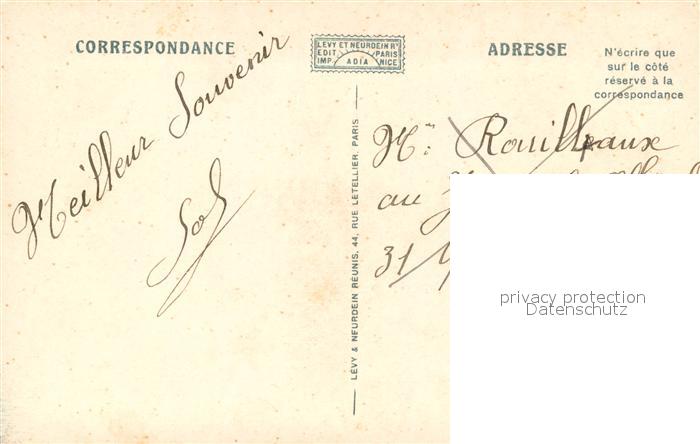 CORRESPONDANCE
LEVY ET NEURDEIN Rs
EDIT. PARIS
IMP. ADIA NICE
ADRESSE
N'écrire que
sur le côté
réservé à la
correspondance
Meilleur Souvenir
LÉVY & NEURDEIN RÉUNIS, 44, RUE LETELLIER, PARIS
Rouilleaux
au
31
privacy protection
Datenschutz